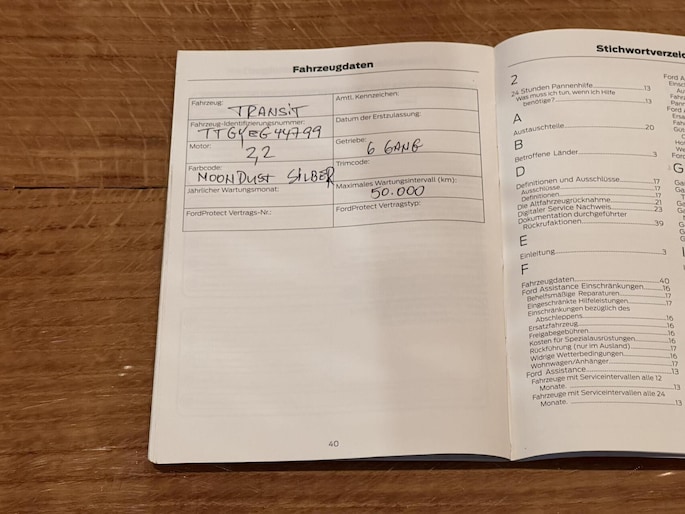 Fahrzeugdaten
Fahrzeug:
TRANSIT
Amtl. Kennzeichen:
Fahrzeug-Identifizierungsnummer:
Datum der Erstzulassung:
Motor:
2,2
Getriebe:
6 GANG
Farbcode:
MOONDUST SILBER
Trimcode:
Jährlicher Wartungsmonat:
Maximales Wartungsintervall (km):
50.000
FordProtect Vertrags-Nr.:
FordProtect Vertragstyp:
40
2
24 Stunden Pannenhilfe 13
Was muss ich tun, wenn ich Hilfe
benötige? 13
A
Austauschteile 20
B
Betroffene Länder 3
D
Definitionen und Ausschlüsse 17
Ausschlüsse 17
Definitionen 17
Die Altfahrzeugrücknahme 21
Digitaler Service Nachweis 23
Dokumentation durchgeführter
Rückrufaktionen 39
E
Einleitung 3
F
Fahrzeugdaten 40
Ford Assistance Einschränkungen 16
Behelfsmäßige Reparaturen 17
Eingeschränkte Hilfeleistungen 17
Einschränkungen bezüglich des
Abschleppens 16
Ersatzfahrzeug 16
Freigabegebühren 16
Kosten für Spezialausrüstungen 16
Rückführung (nur im Ausland) 17
Widrige Wetterbedingungen 16
Wohnwagen/Anhänger 17
Ford Assistance 13
Fahrzeuge mit Serviceintervallen alle 12
Monate. 13
Fahrzeuge mit Serviceintervallen alle 24
Monate. 13